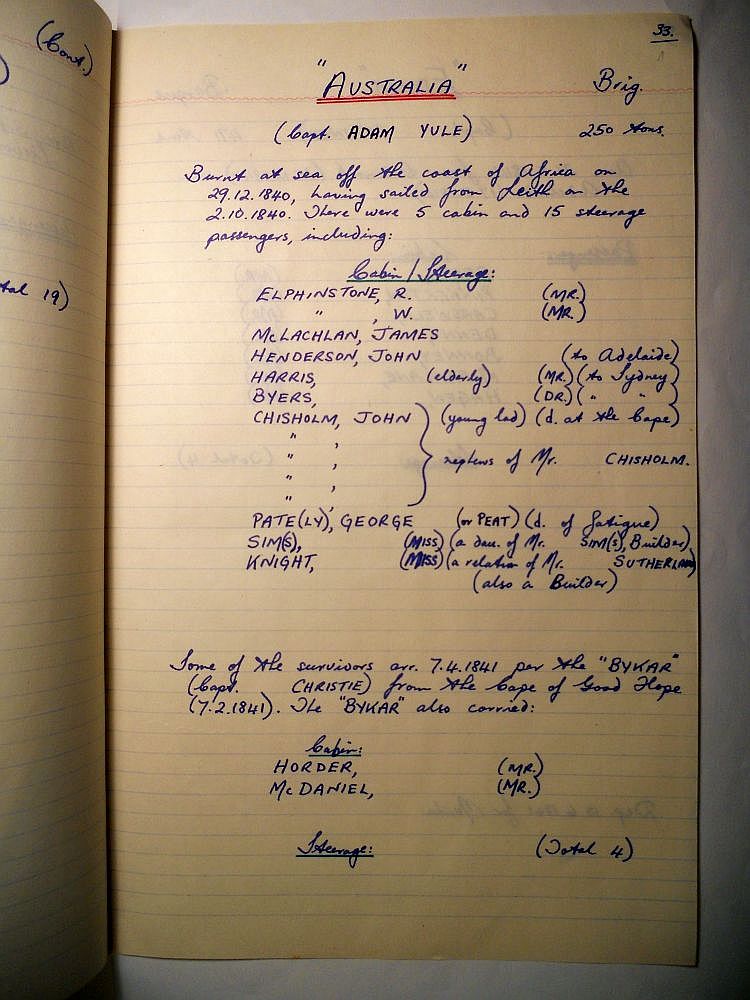 (Cont.)
)
tal 19)
33.
"AUSTRALIA" Brig.
(Capt. ADAM YULE) 250 tons.
Burnt at sea off the coast of Africa on
29.12.1840, having sailed from Leith on the
2.10.1840. There were 5 cabin and 15 steerage
passengers, including:
Cabin/Steerage:
ELPHINSTONE, R. (MR.)
" , W. (MR.)
McLACHLAN, JAMES
HENDERSON, JOHN (to Adelaide)
HARRIS, (elderly) (MR.) (to Sydney)
BYERS, (DR.) (" " )
CHISHOLM, JOHN (young lad) (d. at the Cape)
" ,
" , nephews of Mr. CHISHOLM.
" ,
" ,
PATE(LY), GEORGE (or PEAT) (d. of fatigue)
SIM(S), (MISS) (a dau. of Mr. SIM(S), Builder)
KNIGHT, (MISS) (a relation of Mr. SUTHERLAND)
(also a Builder)
Some of the survivors arr. 7.4.1841 per the "BYKAR"
(Capt. CHRISTIE) from the Cape of Good Hope
(7.2.1841). The "BYKAR" also carried:
Cabin:
HORDER, (MR.)
McDANIEL, (MR.)
Steerage: (Total 4)